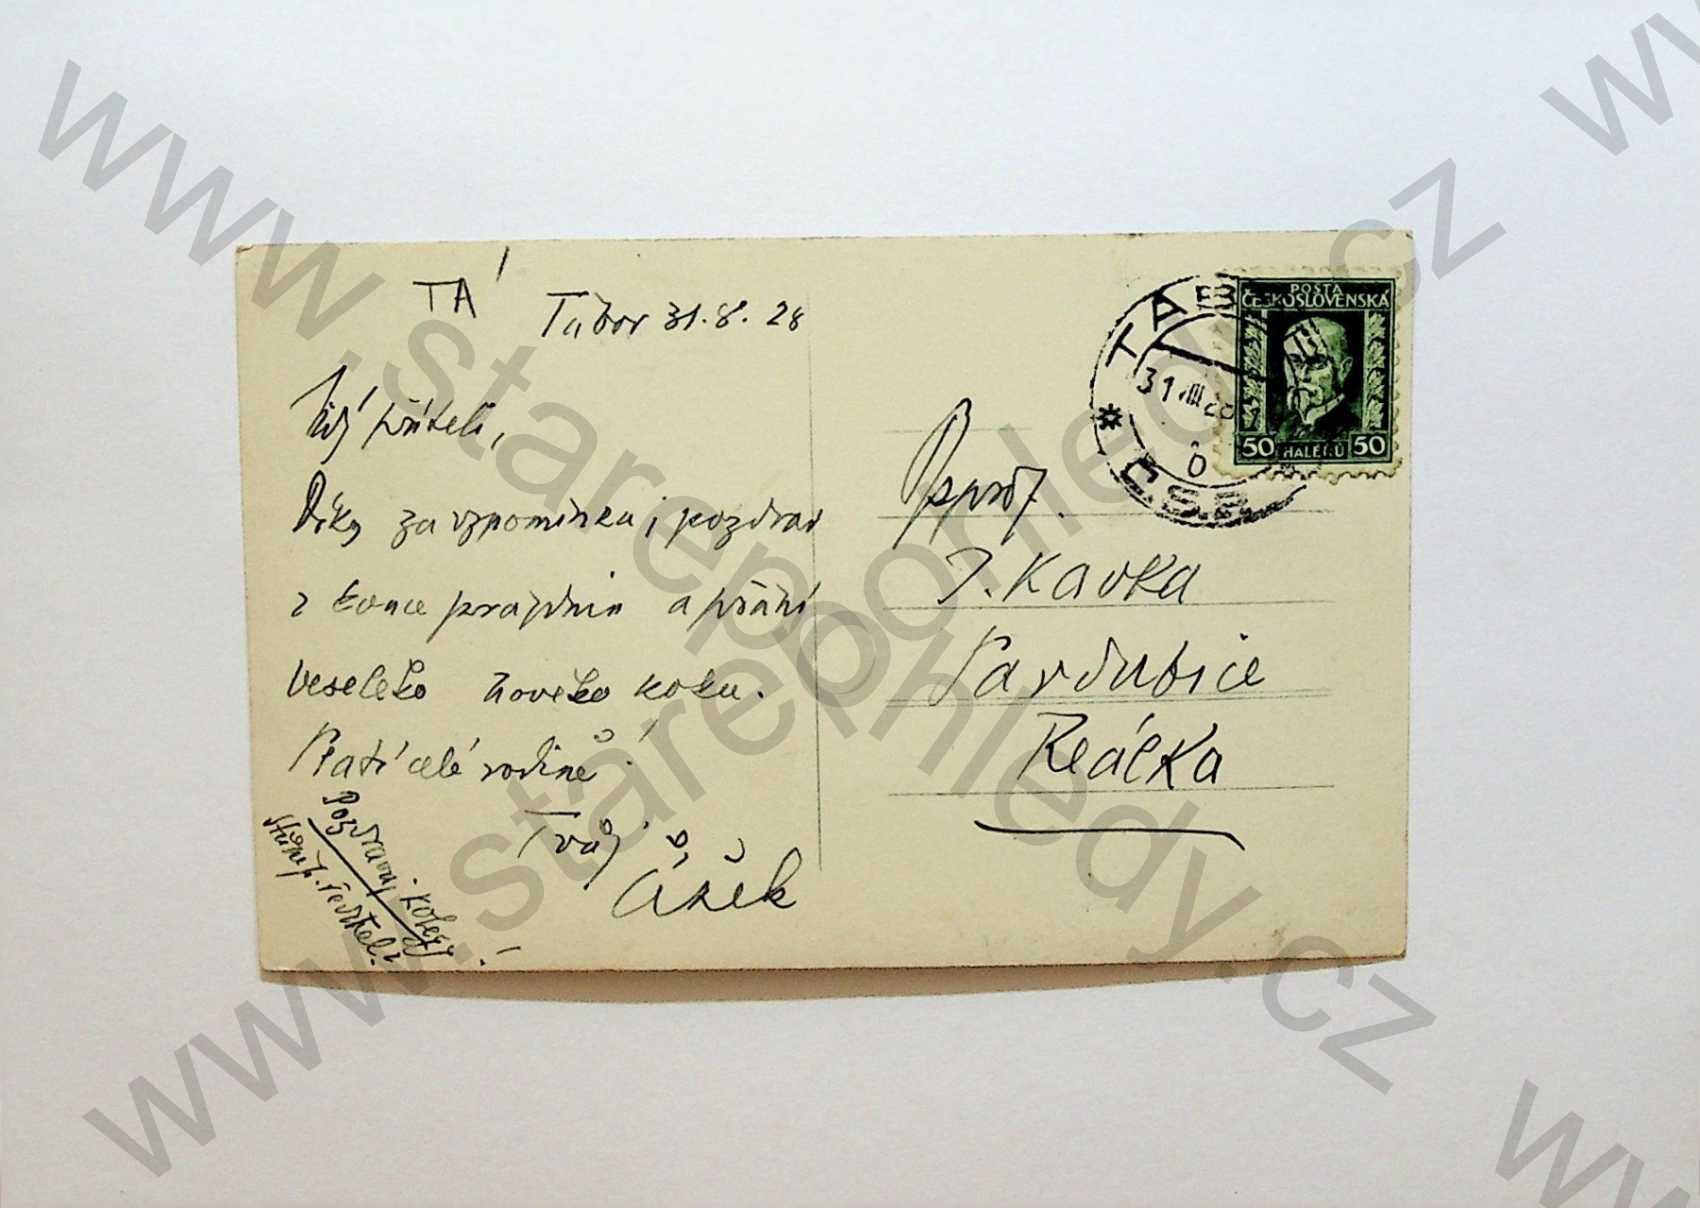 TÁ
Tábor 31.8.28
Můj příteli,
Díky za vzpomínku, pozdrav
z konce prázdnin a přání
veselého nového roku.
Platí celé rodině!
Tvůj
Čížek
Pozdravuj kolegy
p. ředitele!
P. prof.
J. Kavka
Pardubice
Reálka
POŠTA
ČESKOSLOVENSKÁ
50 HALÉŘŮ 50
TÁBOR
31 VIII 28
ČSR
www.starepohledy.cz
www.starepohledy.cz